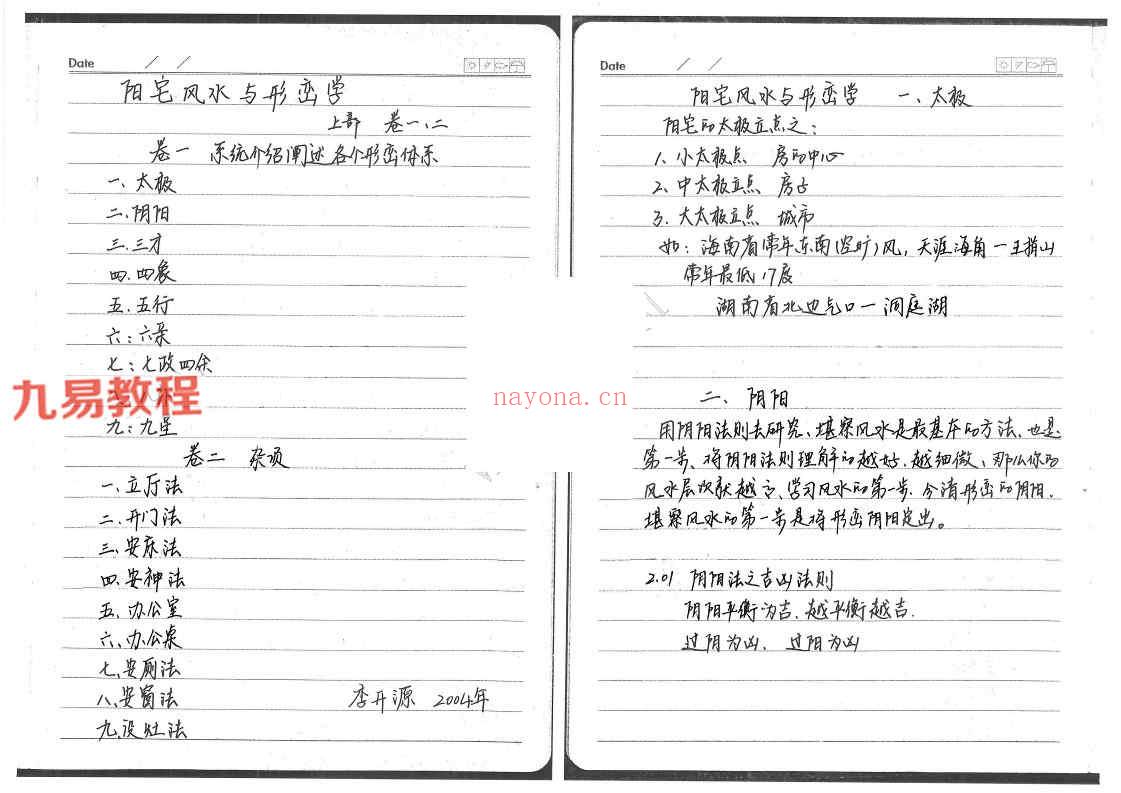 Date / /
阳宅风水与形峦学
上部 卷一、二
卷一 系统介绍阐述各个形峦体系
一、太极
二、阴阳
三、三才
四、四象
五、五行
六：六亲
七：七政四余
九：九星
卷二 杂项
一、立厅法
二、开门法
三、安床法
四、安神法
五、办公室
六、办公桌
七、安厕法
八、安窗法
九、设灶法
李开源 2004年
九易教程
nayona.cn
Date / /
阳宅风水与形峦学 一、太极
阳宅的太极立点之：
1、小太极点 房的中心
2、中太极立点 房占
3、大太极立点 城市
如：海南省常年东南(空旷)风，天涯海角一王指山
常年最低17度
湖南省北边气口一洞庭湖
二、阴阳
用阴阳法则去研究、堪察风水是最基本的方法、也是
第一步、将阴阳法则理解的越好、越细微、那么你的
风水层次就越高、学习风水的第一步、分清形峦的阴阳、
堪察风水的第一步是将形峦阴阳定出。
2.01 阴阳法之吉凶法则
阴阳平衡为吉、越平衡越吉.
过阴为凶、过阳为凶